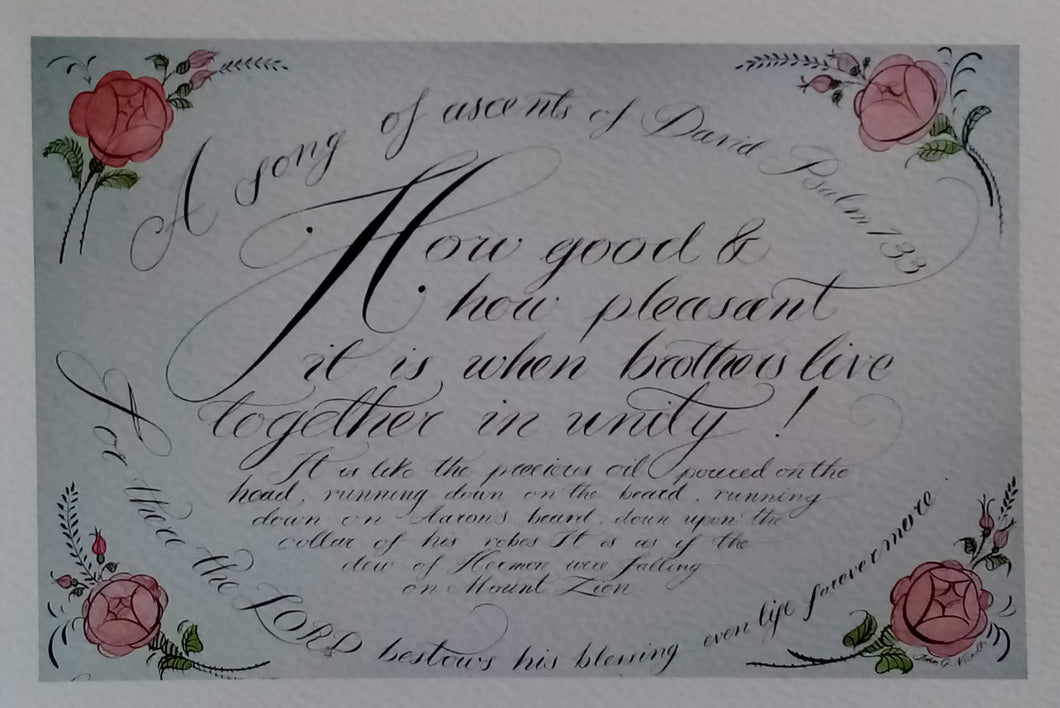 A song of ascents of David Psalm 133
How good &
how pleasant
it is when brothers live
together in unity !
It is like the precious oil poured on the
head, running down on the beard, running
down on Aaron's beard, down upon the
collar of his robes It is as if the
dew of Hermon were falling
on Mount Zion
For there the LORD bestows his blessing even life forevermore.